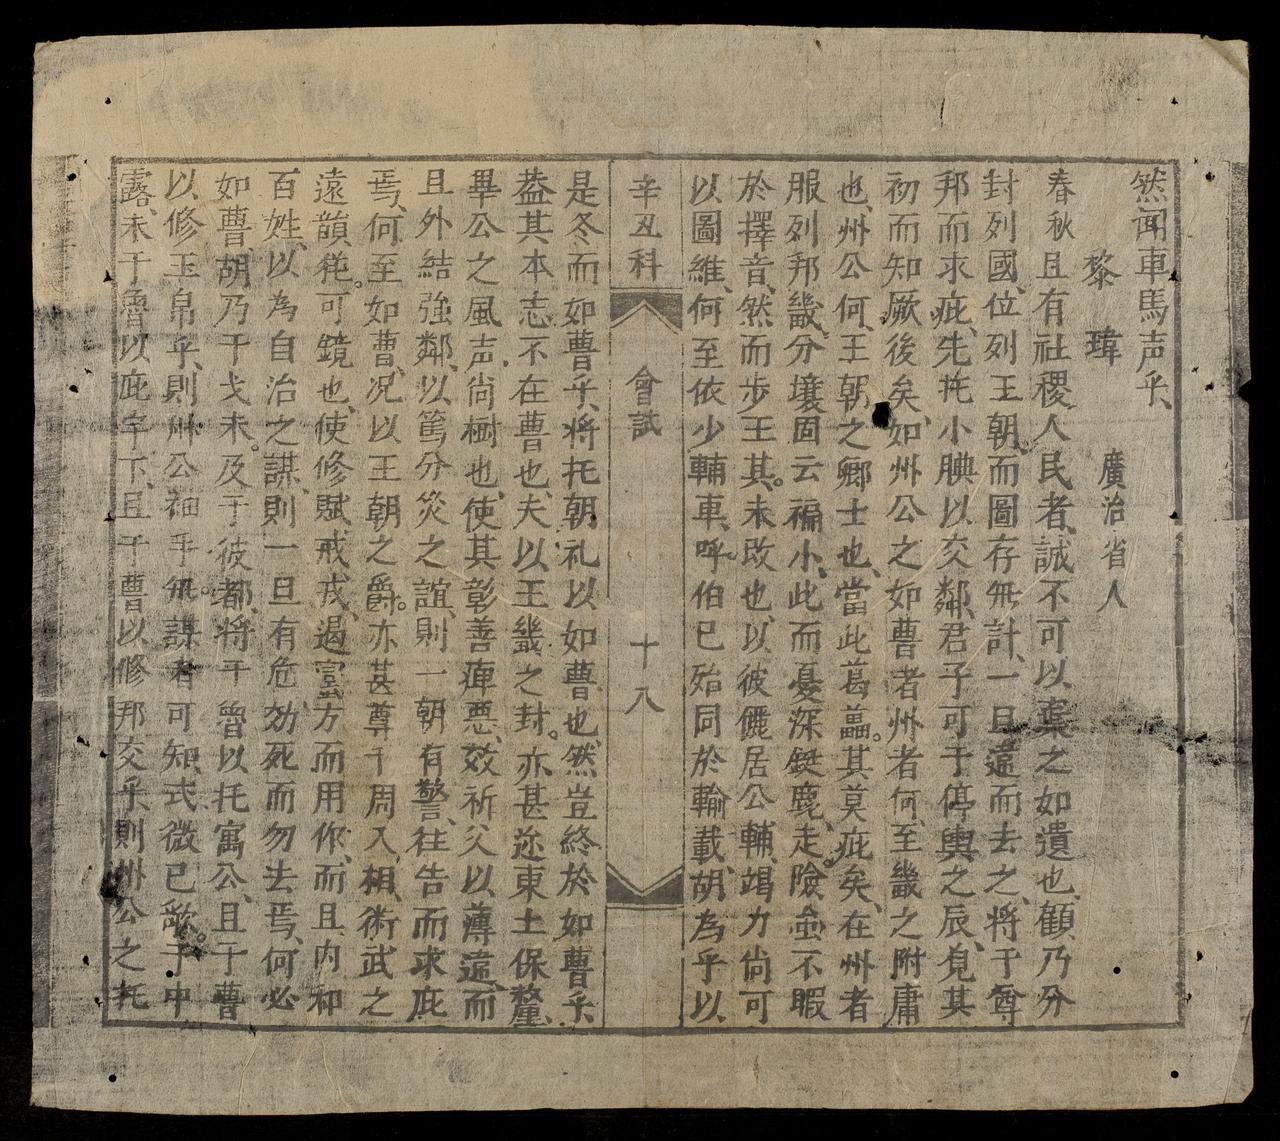 然闻車馬声乎、
黎　瑋　廣治省人
春秋且有社稷人民者、誠不可以棄之如遺也、顧乃分
封列國、位列王朝、而圖存無計、一旦遠而去之、將于尊
邦而求庇、先托小腆以交鄰、君子可于停輿之辰、見其
初而知厥後矣、如州公之如曹者州者何、至畿之附庸
也、州公何、王朝之鄉士也、當此葛藟。其莫庇矣、在州者
服列邦畿、分壤固云褊小、此而憂深鋌鹿、走。險命不暇
於擇音、然而步王其。未改也、以彼儷居公、輔、竭力尚可
以圖維、何至依少輔車、呼。伯已殆同於輸載、胡為乎以
辛丑科　會試　十八
是冬而如曹乎、將托朝礼以如曹也、然豈終於如曹乎、
葢其本志不在曹也、夫以王畿之封。亦甚迩東土保釐、
畢公之風声、尚樹也、使其彰善癉悪、效祈父以薄違、而
且外結強鄰、以篤分災之誼、則一朝有警、往告而求庇
焉、何至如曹、况以王朝之爵。亦甚尊于周入、相、術武之
遠韻。可鏡也、使修賦、戒戎、遏蛮方而用作、而且内和
百姓、以為自治之謀、則一旦有危、効死而勿去焉、何必
如曹、胡乃干戈未。及于彼都、將于魯以托寓公、且于曹
以修玉帛乎、則州公袖手無。謀者可知、式微已歌。于中
露、未于魯以庇宇下、且于曹以修邦交乎、則州公之托